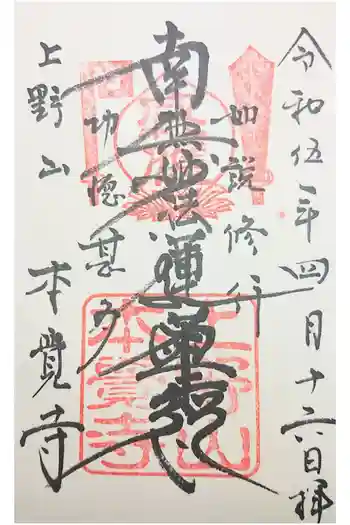 令和伍年四月十六日拝
如説修行
南無妙法蓮華経
功徳甚多
上野山
本覺寺
上野山
本覺寺